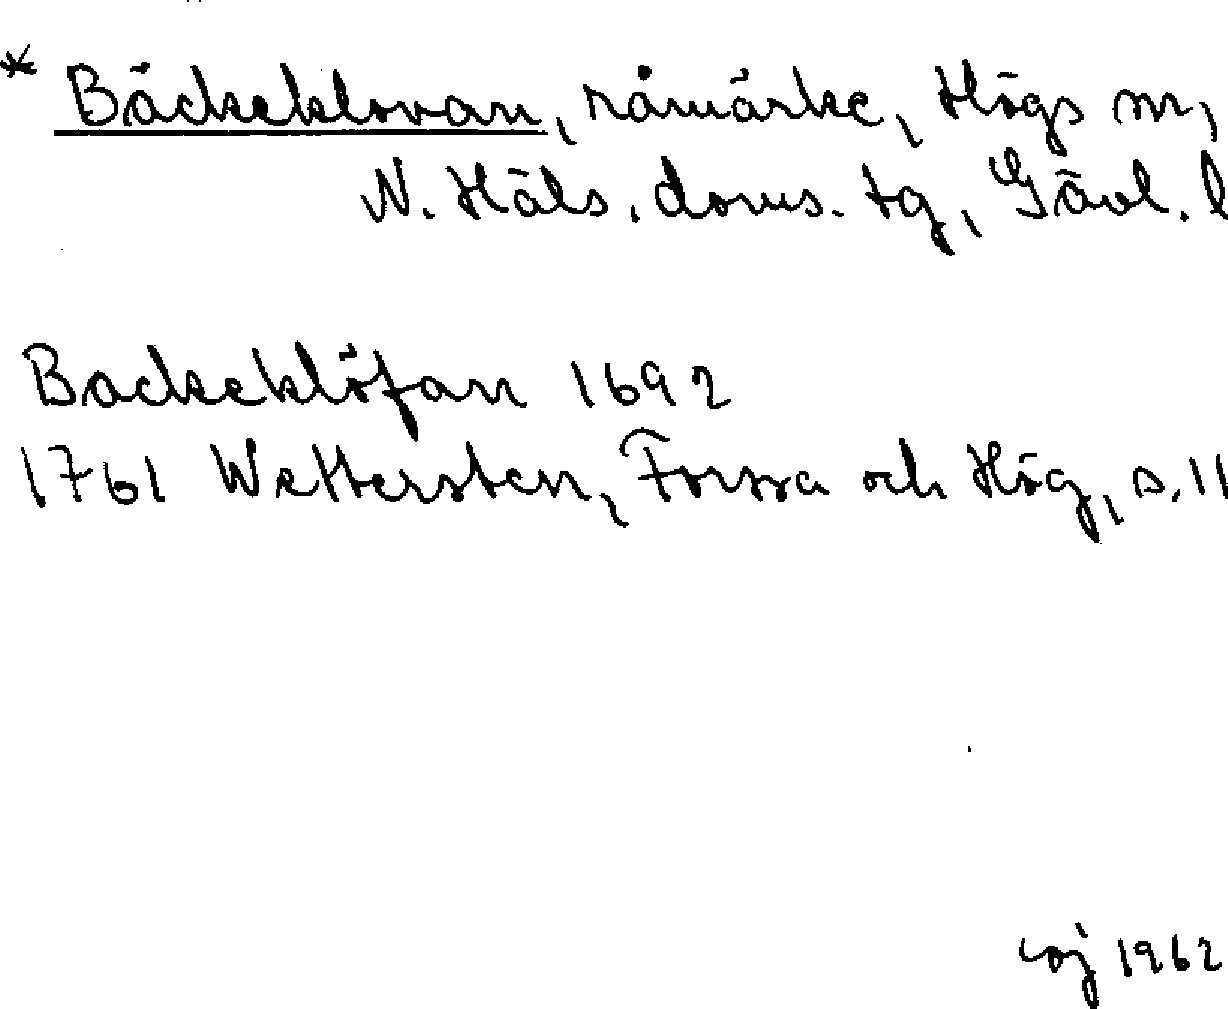 * Bäckeklovan, råmärke, Högs sn,
N. Häls. doms. tg, Gävl. l
Backeklöfan 1692
1761 Wettersten, Forssa och Hög, s. 11
1962